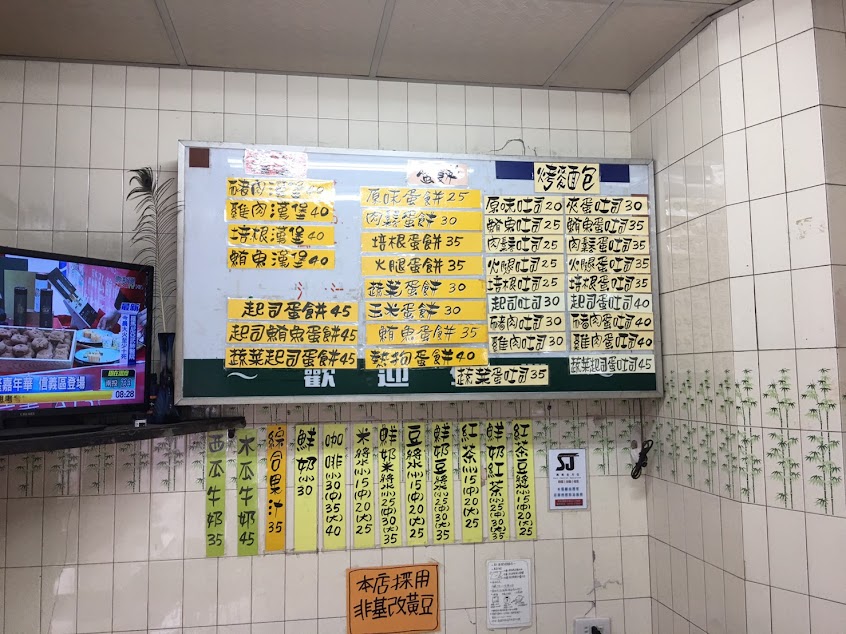 豬肉漢堡40
雞肉漢堡40
培根漢堡40
鮪魚漢堡40
起司蛋餅45
起司鮪魚蛋餅45
蔬菜起司蛋餅45
原味蛋餅25
肉鬆蛋餅30
培根蛋餅35
火腿蛋餅35
蔬菜蛋餅30
玉米蛋餅30
鮪魚蛋餅35
熱狗蛋餅40
烤麵包
原味吐司20
鮪魚吐司25
肉鬆吐司25
火腿吐司25
培根吐司25
起司吐司30
豬肉吐司30
雞肉吐司30
夾蛋吐司30
鮪魚蛋吐司35
肉鬆蛋吐司35
火腿蛋吐司35
培根蛋吐司35
起司蛋吐司40
豬肉蛋吐司40
雞肉蛋吐司40
蔬菜起司蛋吐司45
蔬菜蛋吐司35
歡迎
西瓜牛奶35
木瓜牛奶45
綜合果汁35
鮮奶小30
咖啡小30中35大40
米漿小15中20大25
鮮奶米漿小25中30大35
豆漿小15中20大25
鮮奶豆漿小25中30大35
紅茶小15中20大25
鮮奶紅茶小25中30大35
紅茶豆漿小15中20大25
SJ
本店採用
非基改黃豆
嘉年華 信義區登場
08:28